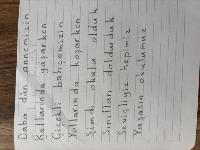 Daha dün annemizin
Kollarında yaşarken
Çiçekli bahçemizin
Yollarında koşarken
Şimdi okula olduk
Sınıfları doldurduk
Sevinçliyiz hepimiz
Yaşasın okulumuz